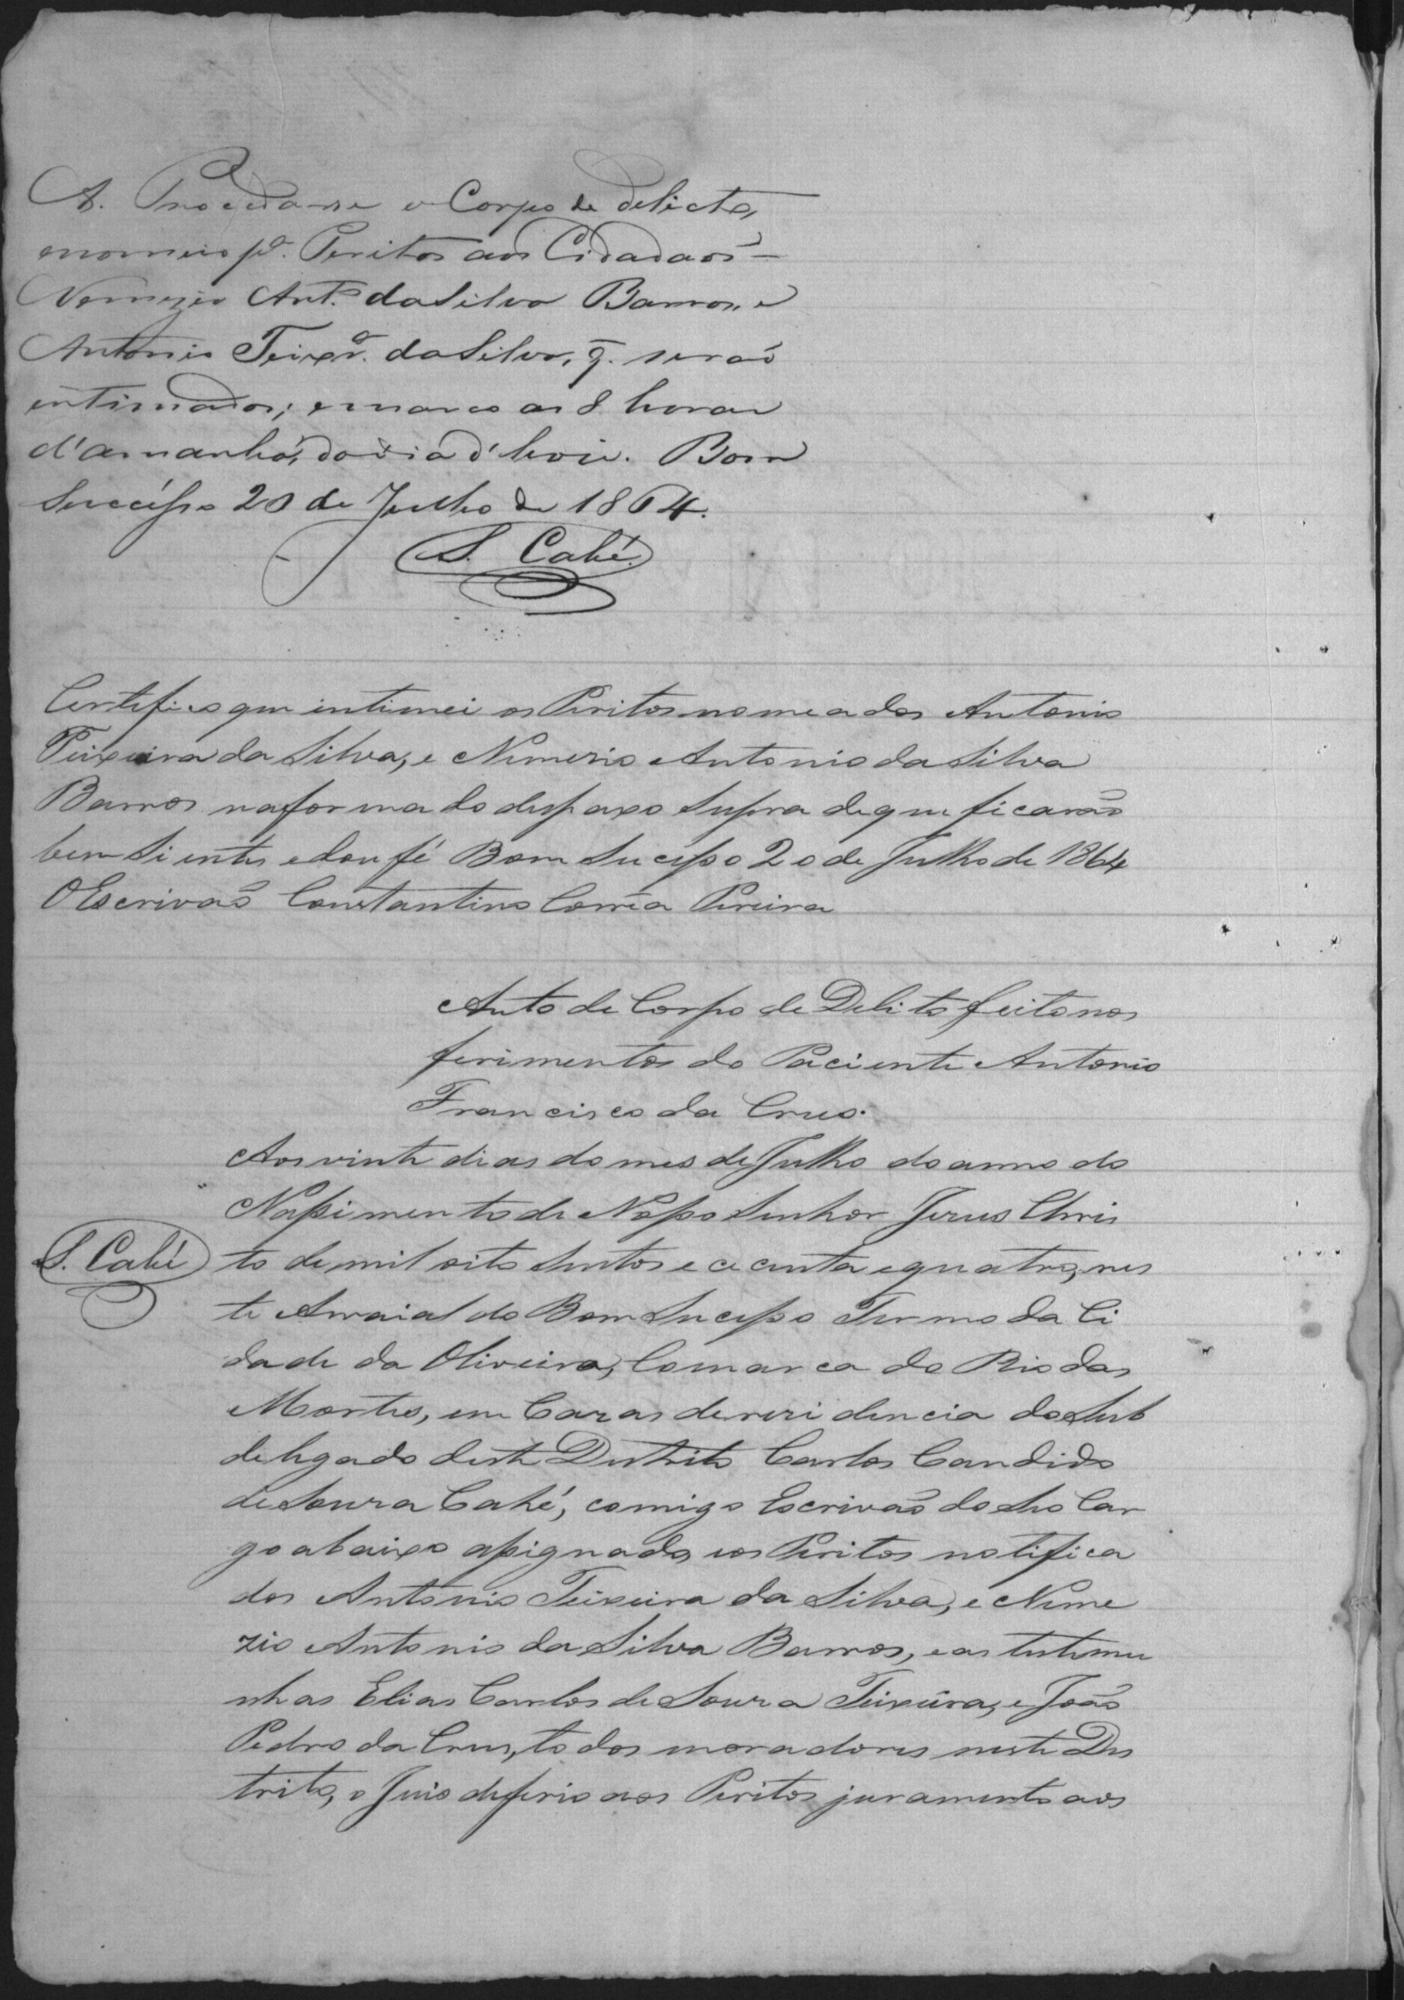 A. Proceda-se o Corpo de delicto,
e nomeio pª. Peritos aos Cidadaõs -
Nemezio Antº. da Silva Barros, e
Antonio Teixrª. da Silva, q̃. seraõ
intimados; e marco as 8 horas
d'amanhã, do dia d'hoie. Bom
Succésso 20 de Julho de 1864.
S. Cahé.
Certifico que intimei os Peritos nomeados Antonio
Teixeira da Silva, e Nemezio Antonio da Silva
Barros na forma do despaxo supra de que ficaraõ
bem sientes e dou fé Bom Sucesso 20 de Julho de 1864
O Escrivaõ Constantino Corrêa Pereira
Auto de Corpo de Delito, feito nos
ferimentos do Paciente Antonio
Francisco da Crus.
Aos vinte dias do mes de Julho do anno do
Nassimento de Nosso Senhor Jesus Chris
S. Cahé
to de mil oito sentos e cecenta e quatro, nes
te Arraial do Bom Sucesso Termo da Ci
dade da Oliveira, Comarca do Rio das
Mortes, em Cazas de rezidencia do Sub
delegado deste Destrito Carlos Candido
de Souza Cahé, comigo Escrivaõ do Seo Car
go abaixo assignado, e os Peritos notifica
dos Antonio Teixeira da Silva, e Neme
zio Antonio da Silva Barros, e as testemu
nhas Elias Carlos de Souza Teixeira, e Joaõ
Pedro da Crus, todos moradores neste Des
trito, o Juis deferio aos Peritos juramento aos